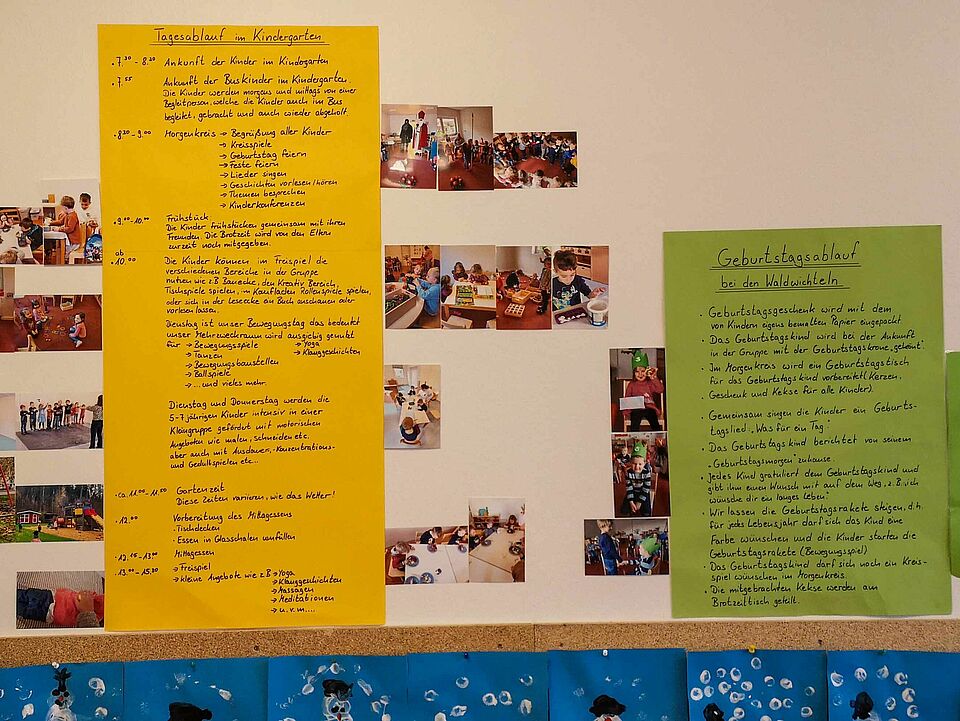 Tagesablauf im Kindergarten
• 7.30 - 8.20 Ankunft der Kinder im Kindergarten
• 7.55 Ankunft der Buskinder im Kindergarten.
Die Kinder werden morgens und mittags von einer
Begleitperson, welche die Kinder auch im Bus
begleitet, gebracht und auch wieder abgeholt.
• 8.20 - 9.00 Morgenkreis → Begrüßung aller Kinder
→ Kreisspiele
→ Geburtstag feiern
→ Feste feiern
→ Lieder singen
→ Geschichten vorlesen/hören
→ Themen besprechen
→ Kinderkonferenzen
• 9.00 - 10.00 Frühstück
Die Kinder frühstücken gemeinsam mit ihren
Freunden. Die Brotzeit wird von den Eltern
zurzeit noch mitgegeben.
ab
• 10.00 Die Kinder können im Freispiel die
verschiedenen Bereiche in der Gruppe
nutzen wie z.B Bauecke, den Kreativ Bereich,
Tischspiele spielen, im Kaufladen Rollenspiele spielen,
oder sich in der Leseecke ein Buch anschauen oder
vorlesen lassen.
Dienstag ist unser Bewegungstag das bedeutet
unser Mehrzweckraum wird ausgiebig genutzt
für → Bewegungsspiele → Yoga
→ Tanzen → Klanggeschichten
→ Bewegungsbaustellen
→ Ballspiele
→ ... und vieles mehr.
Dienstag und Donnerstag werden die
5-7 jährigen Kinder intensiv in einer
Kleingruppe gefördert mit motorischen
Angeboten wie malen, schneiden etc.
aber auch mit Ausdauer,- Konzentrations-
und Geduldspielen etc...
• ca. 11.00 - 11.50 Gartenzeit
Diese Zeiten variieren, wie das Wetter!
• 12.00 Vorbereitung des Mittagessens
• Tischdecken
• Essen in Glasschalen umfüllen
• 12.15 - 13.00 Mittagessen
• 13.00 - 15.30 → Freispiel
→ kleine Angebote wie z.B → Yoga
→ Klanggeschichten
→ Massagen
→ Meditationen
→ u.v.m....
Geburtstagsablauf
bei den Waldwichteln
• Geburtstagsgeschenk wird mit dem
von Kindern eigens bemalten Papier eingepackt
• Das Geburtstagskind wird bei der Ankunft
in der Gruppe mit der Geburtstagskrone „gekrönt".
• Im Morgenkreis wird ein Geburtstagstisch
für das Geburtstagskind vorbereitet (Kerzen,
Geschenk und Kekse für alle Kinder)
• Gemeinsam singen die Kinder ein Geburts-
tagslied „Was für ein Tag"
• Das Geburtstagskind berichtet von seinem
„Geburtstagsmorgen" zuhause.
• Jedes Kind gratuliert dem Geburtstagskind und
gibt ihm einen Wunsch mit auf dem Weg, z.B. „ich
wünsche dir ein langes Leben"
• Wir lassen die Geburtstagsrakete steigen, d.h.
für jedes Lebensjahr darf sich das Kind eine
Farbe wünschen und die Kinder starten die
Geburtstagsrakete (Bewegungsspiel)
• Das Geburtstagskind darf sich noch ein Kreis-
spiel wünschen im Morgenkreis.
• Die mitgebrachten Kekse werden am
Brotzeittisch geteilt.